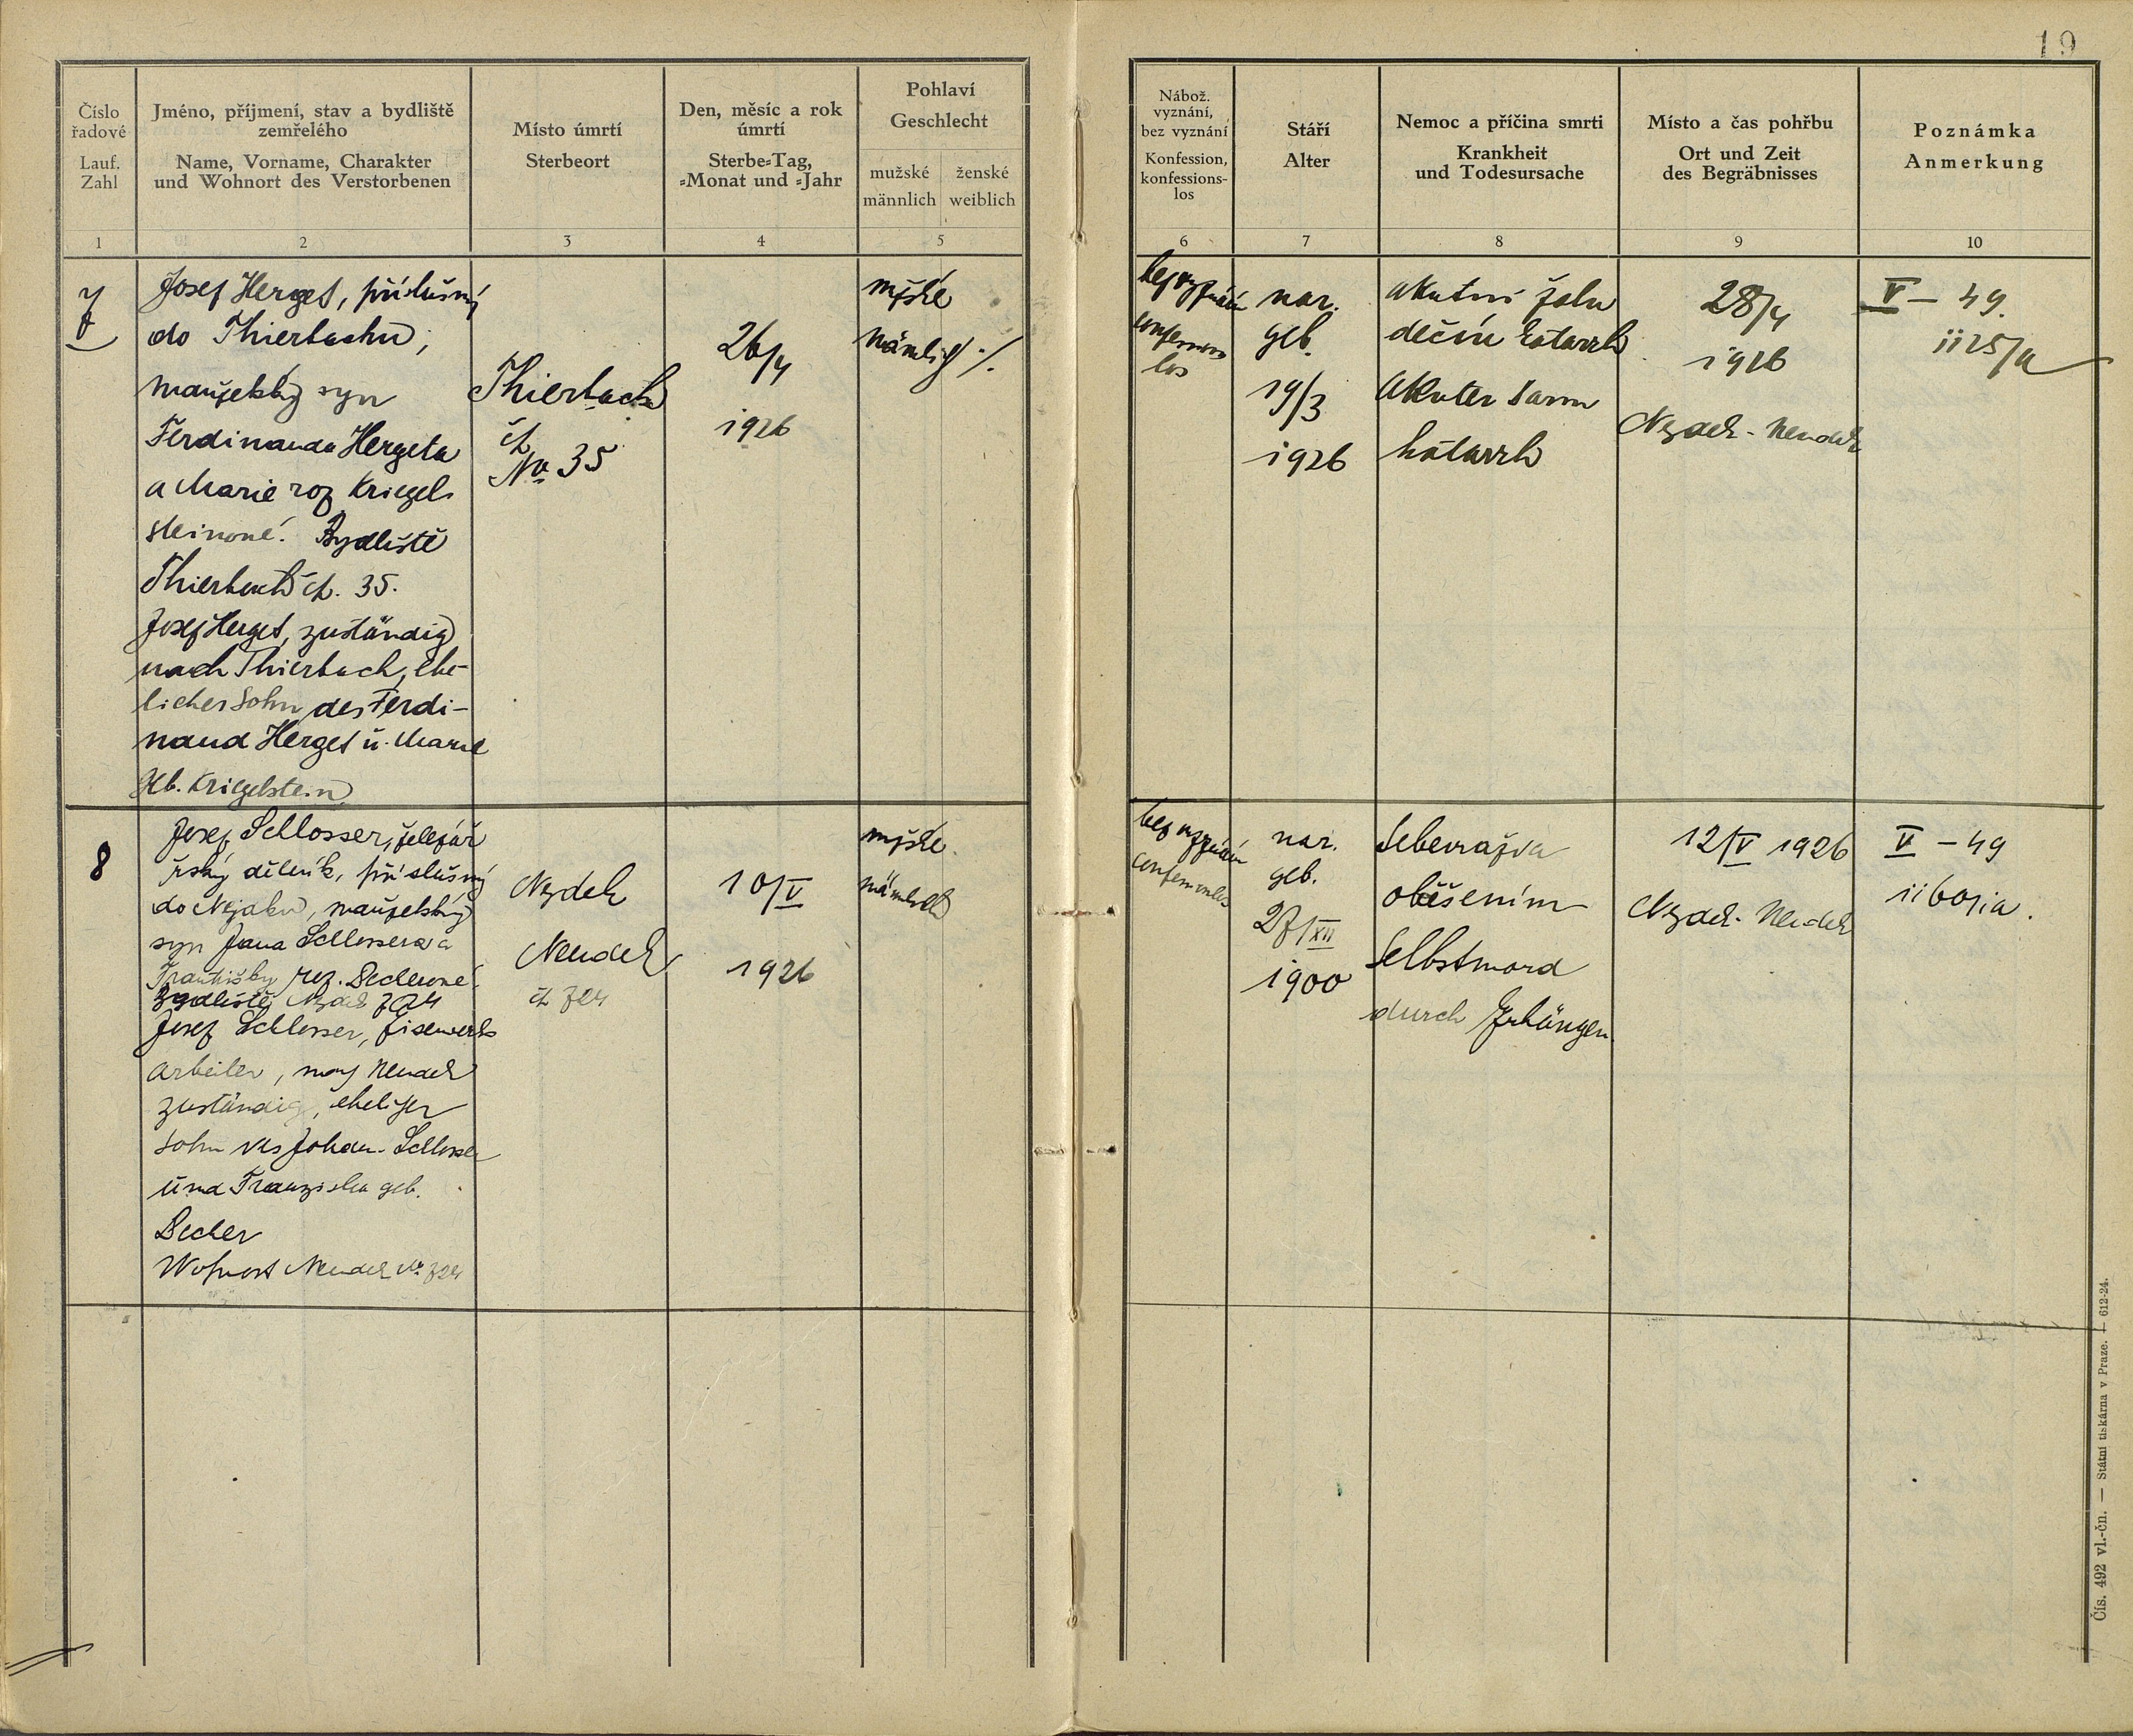 19
Číslo
řadové
Lauf.
Zahl
1
Jméno, příjmení, stav a bydliště
zemřelého
Name, Vorname, Charakter
und Wohnort des Verstorbenen
2
Místo úmrtí
Sterbeort
3
Den, měsíc a rok
úmrtí
Sterbe-Tag,
-Monat und -Jahr
4
Pohlaví
Geschlecht
mužské
männlich
ženské
weiblich
5
Nábož.
vyznání,
bez vyznání
Konfession,
konfessions-
los
6
Stáří
Alter
7
Nemoc a příčina smrti
Krankheit
und Todesursache
8
Místo a čas pohřbu
Ort und Zeit
des Begräbnisses
9
Poznámka
Anmerkung
10
7
Josef Herget, příslušný
do Thierbachu,
manželský syn
Ferdinanda Hergeta
a Marie roz Kriegel-
steinové. Bydliště
Thierbach čp. 35.
Josef Herget, zuständig
nach Thierbach, ehe-
licher Sohn des Ferdi-
nand Herget u. Marie
geb. Kriegelstein
Thierbach
čp.
No 35
26/4
1926
mužské
bez vyznání
los
nar.
geb.
19/3
1926
akutní žalu
deční katarrh
akuter Darm
katarrh
28/4
1926
Nejdek - Neudek
V - 49.
8
Josef Schlosser, železář
řský dělník, příslušný
do Nejdku, manželský
syn Jana Schlossera a
Františky roz. Becherové
Bydliště Nejdek
Josef Schlosser, Eisenwerks
arbeiter, nach Neudek
zuständig, ehelicher
Sohn des Johann Schlosser
und Franziska geb.
Becher
Wohnort Neudek No
Nejdek
Neudek
10/V
1926
mužské
männlich
bez vyznání
nar.
geb.
27/XII
1900
Sebevražda
oběšením
Selbstmord
durch Erhängen
12/V 1926
Nejdek - Neudek
V - 49
Čís. 492 vl.-čn. — Státní tiskárna v Praze. — 612-24.